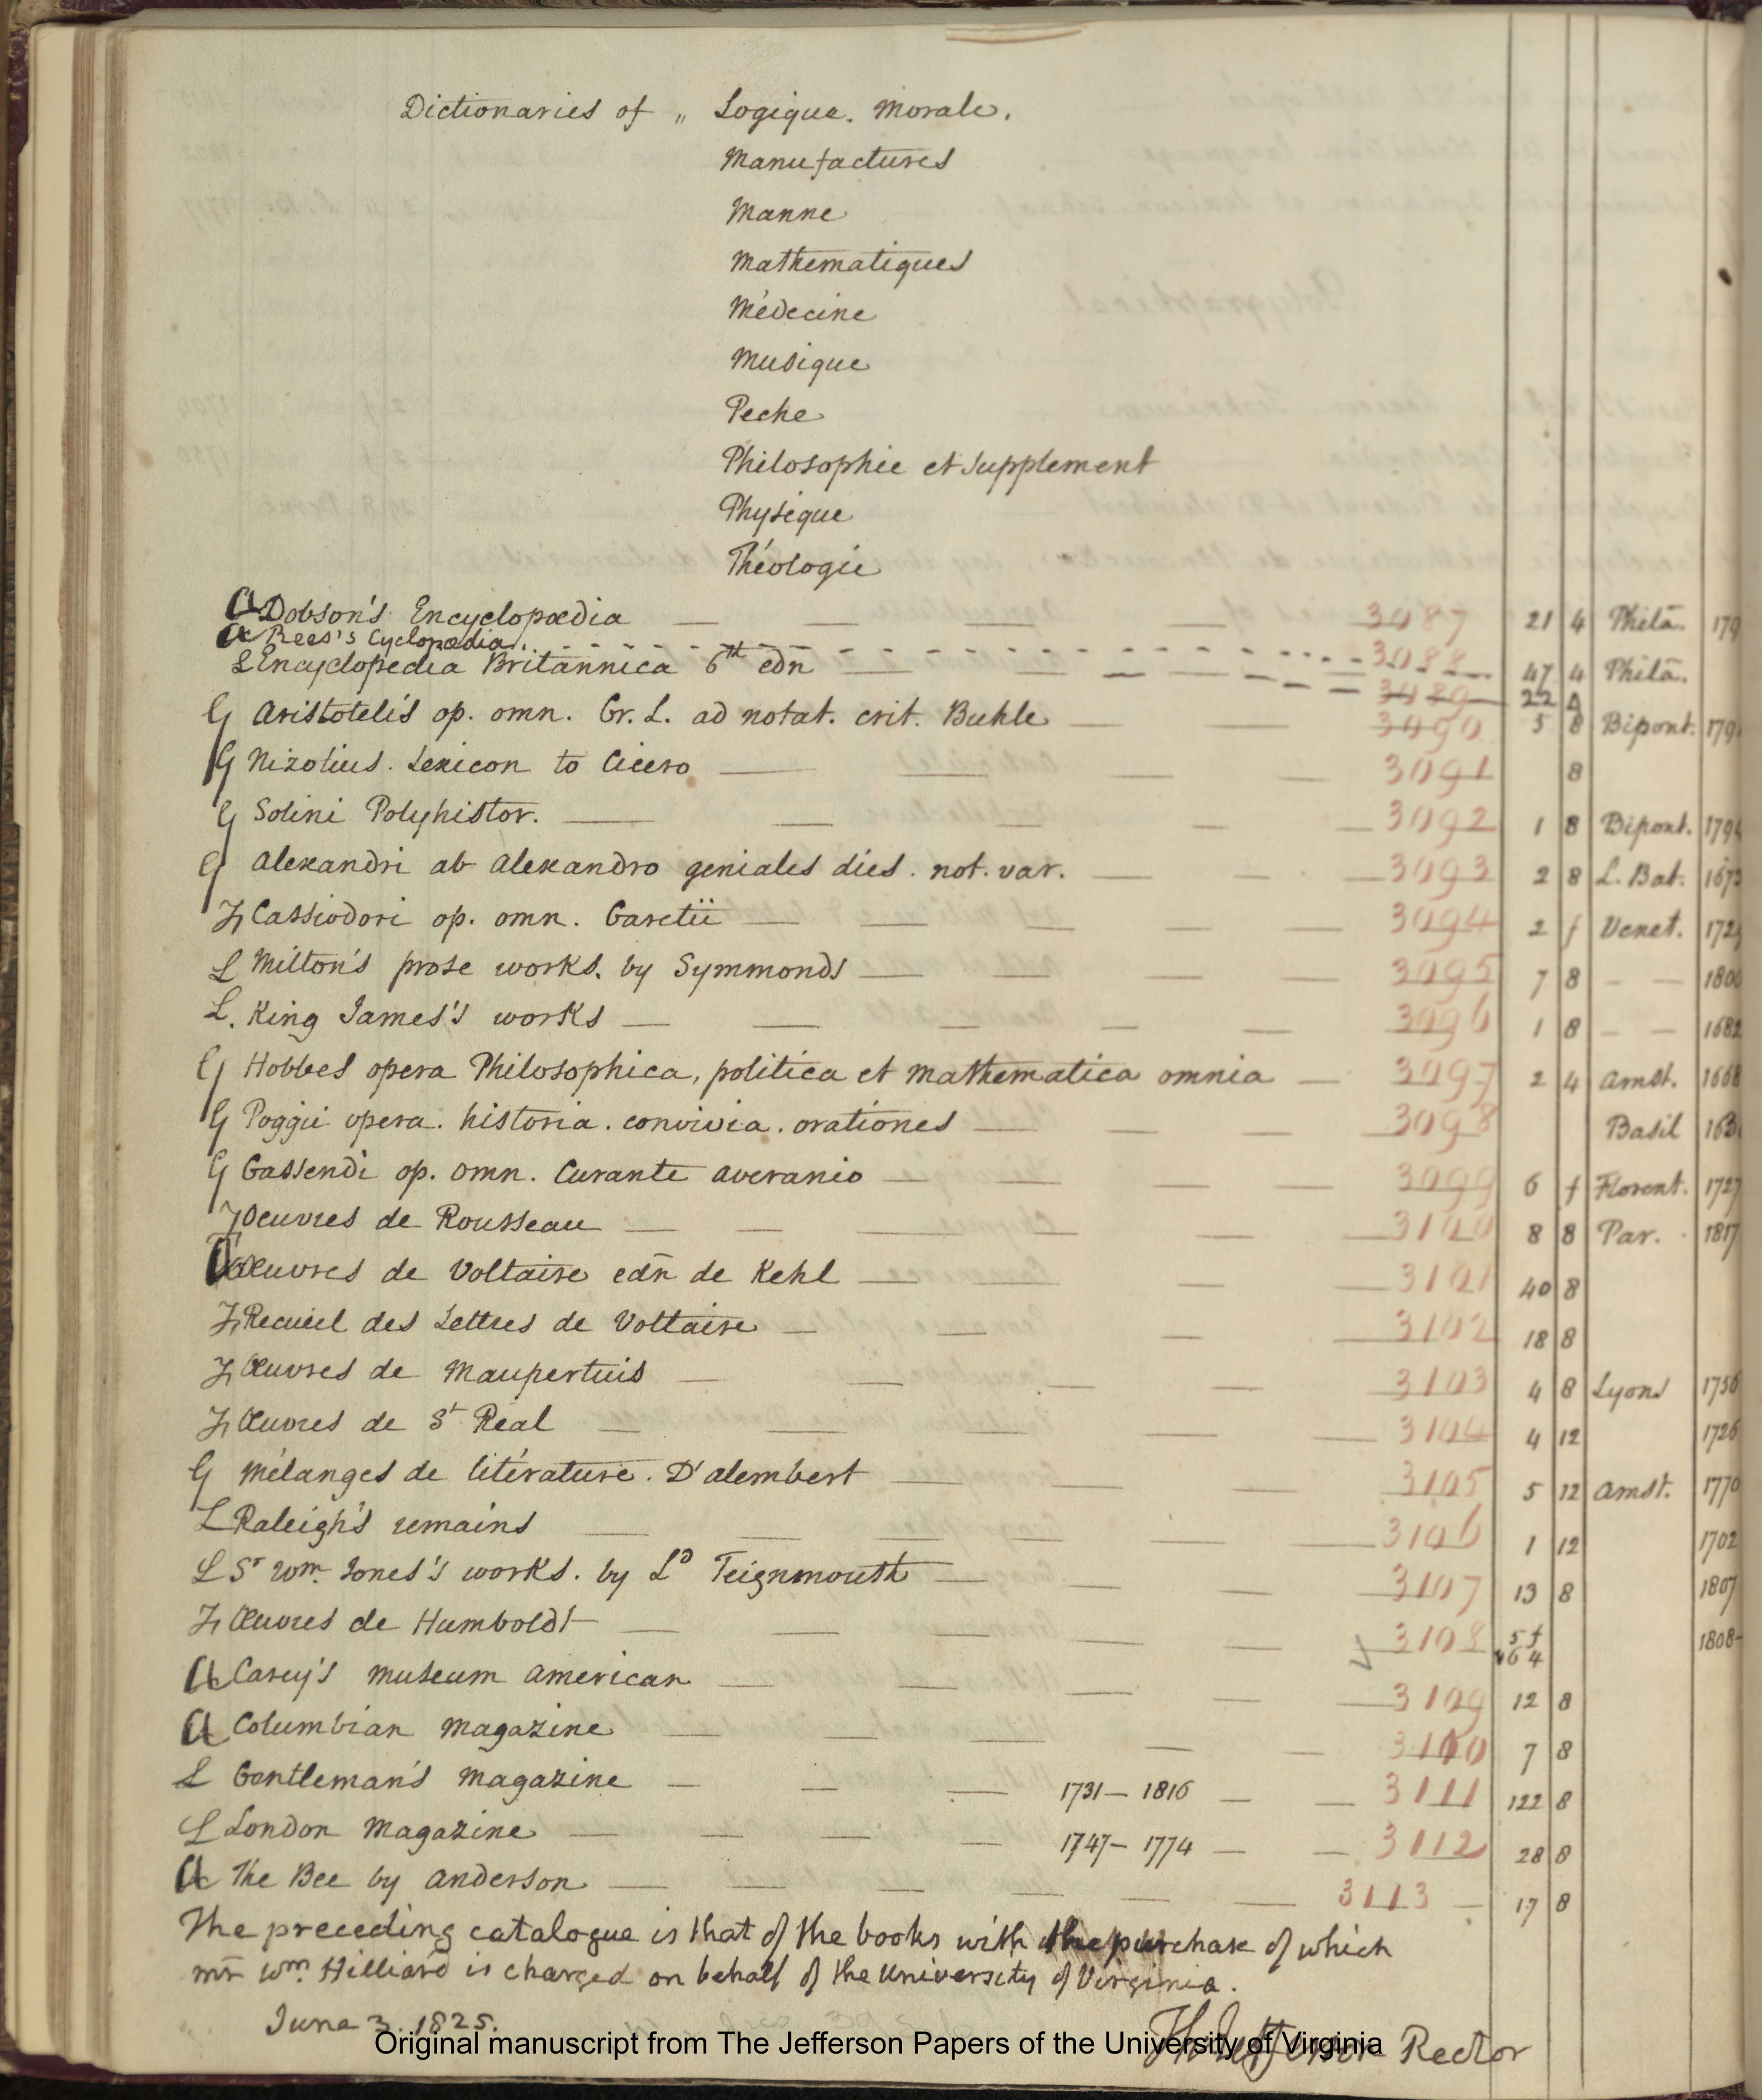 Dictionaries of „ Logique. Morale.
Manufactures
Marine
Mathematiques
Médecine
Musique
Peche
Philosophie et Supplement
Physique
Théologie
A Dobson's Encyclopædia — 3087 21 4 Philā. 179
A Rees's Cyclopædia. 3088 47 4 Philā.
L Encyclopedia Britannica 6th edn — 3089 22 4
G Aristotelis op. omn. Gr. L. ad notat. crit. Buhle — 3090 5 8 Bipont. 179
G Nizolius. Lexicon to Cicero — 3091 8
G Solini Polyhistor. — 3092 1 8 Bipont. 1794
G Alexandri ab Alexandro geniales dies. not. var. — 3093 2 8 L. Bat. 1673
F Cassiodori op. omn. Garetii — 3094 2 f Venet. 172
L Milton's prose works. by Symmonds — 3095 7 8 — — 180
L. King James's works — 3096 1 8 — — 1682
G Hobbes opera Philosophica, politica et mathematica omnia — 3097 2 4 Amst. 1668
G Poggii opera. historia. convivia. orationes — 3098 Basil 163
G Gassendi op. omn. Curante Averanio — 3099 6 f Florent. 1727
F Oeuvres de Rousseau — 3100 8 8 Par. 1817
Œuvres de Voltaire edn̄ de Kehl — 3101 40 8
F Recueil des Lettres de Voltaire — 3102 18 8
F Œuvres de Maupertuis — 3103 4 8 Lyons 1756
F Œuvres de St Real — 3104 4 12 1726
G Mélanges de litérature. D'Alembert — 3105 5 12 Amst. 1770
L Raleigh's remains — 3106 1 12 1702
L Sr Wm. Jones's works. by Ld Teignmouth — 3107 13 8 1807
F Œuvres de Humboldt — 3108 5 f 6 4 1808-
A Carey's Museum American — 3109 12 8
A Columbian Magazine — 3110 7 8
L Gentleman's Magazine — 1731 — 1816 — 3111 122 8
L London Magazine — 1747 — 1774 — 3112 28 8
A The Bee by Anderson — 3113 — 17 8
The preceding catalogue is that of the books with the purchase of which
mr̄ Wm. Hilliard is charged on behalf of the University of Virginia.
June 3. 1825.
Th: Jefferson Rector
Original manuscript from The Jefferson Papers of the University of Virginia